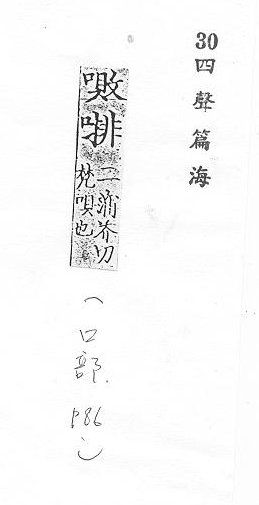 30四聲篇海
𠿎啡
二蒲芥切
梵唄也
（口部.
p86）